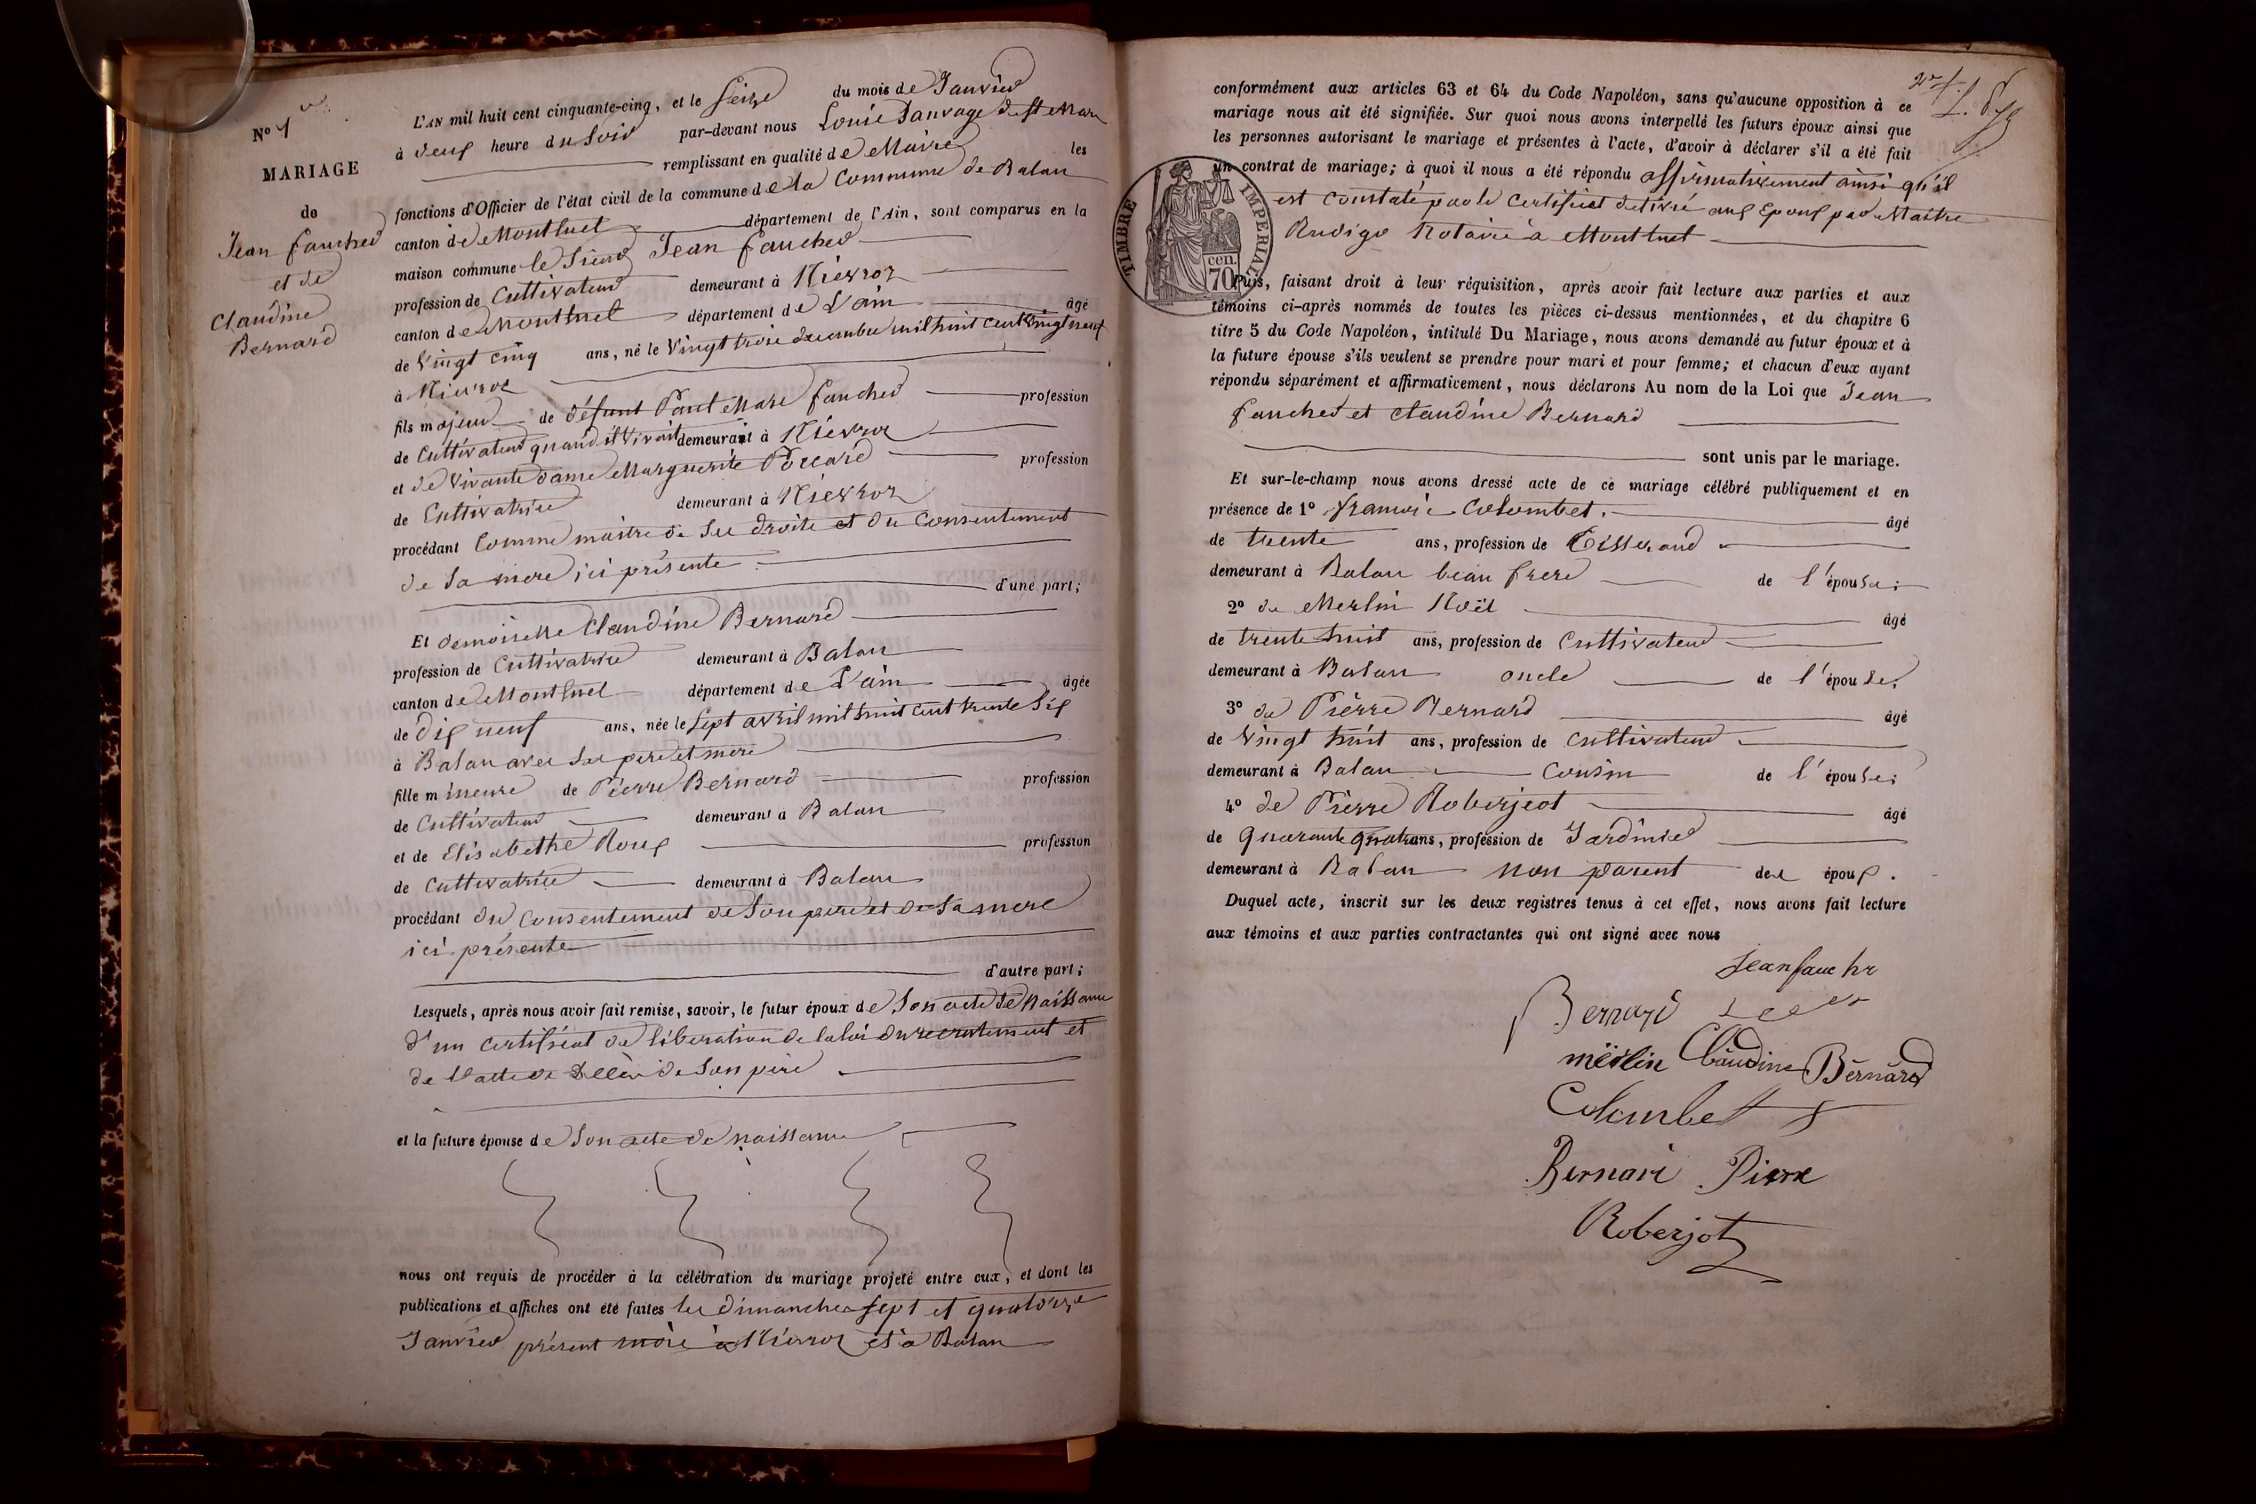 No 1
MARIAGE
de
Jean faucher
et de
Claudine
Bernard
L'AN mil huit cent cinquante-cinq, et le Seize du mois de Janvier
à deux heure du Soir par-devant nous Louis Sauvage de St
remplissant en qualité de Maire les
fonctions d'Officier de l'état civil de la commune de la Commune de Balan
canton de Montluel département de l'Ain, sont comparus en la
maison commune le Sieur Jean faucher
profession de Cultivateur demeurant à Niévroz
canton de Montluel département de L'ain âgé
de Vingt cinq ans, né le Vingt trois decembre mil huit cent Vingt neuf
à Nievroz
fils majeur de défunt Paul Marc faucher profession
de Cultivateur quand il Vivait demeurant à Niévroz
et de Vivante dame Marguerite profession
de Cultivatrice demeurant à Niévroz
procédant Comme maitre de Ses droits et du Consentement
de Sa mere ici présente
d'une part;
Et demoiselle Claudine Bernard
profession de Cultivatrice demeurant à Balan
canton de Montluel département de L'ain âgée
de dix neuf ans, née le Sept avril mil huit cent trente Six
à Balan avec Ses pere et mere
fille mineure de Pierre Bernard profession
de Cultivateur demeurant à Balan
et de Elisabethe Roux profession
de Cultivatrice demeurant à Balan
procédant du Consentement de Son pere et de Sa mere
ici présente
d'autre part;
Lesquels, après nous avoir fait remise, savoir, le futur époux de Son acte de Naissance
d'un certificat de libération de la loi du recrutement et
de l'acte de décès de Son père
et la future épouse de Son acte de naissance
nous ont requis de procéder à la célébration du mariage projeté entre eux, et dont les
publications et affiches ont été faites les dimanches sept et quatorze
Janvier présent mois à Niévroz et à Balan
2e f.
conformément aux articles 63 et 64 du Code Napoléon, sans qu'aucune opposition à ce
mariage nous ait été signifiée. Sur quoi nous avons interpellé les futurs époux ainsi que
les personnes autorisant le mariage et présentes à l'acte, d'avoir à déclarer s'il a été fait
un contrat de mariage; à quoi il nous a été répondu affirmativement ainsi qu'il
est constaté par le Certificat délivré aux Epoux par Maitre
Rudigo Notaire à Montluel
TIMBRE IMPERIAL
70 cen.
Puis, faisant droit à leur réquisition, après avoir fait lecture aux parties et aux
témoins ci-après nommés de toutes les pièces ci-dessus mentionnées, et du chapitre 6
titre 5 du Code Napoléon, intitulé Du Mariage, nous avons demandé au futur époux et à
la future épouse s'ils veulent se prendre pour mari et pour femme; et chacun d'eux ayant
répondu séparément et affirmativement, nous déclarons Au nom de la Loi que Jean
faucher et Claudine Bernard
sont unis par le mariage.
Et sur-le-champ nous avons dressé acte de ce mariage célébré publiquement et en
présence de 1o françois Colombet. âgé
de trente ans, profession de Tisserand
demeurant à Balan beau frere de l'épouse;
2o de Merlin Noël âgé
de trente huit ans, profession de Cultivateur
demeurant à Balan oncle de l'épouse;
3o de Pierre Bernard âgé
de Vingt huit ans, profession de Cultivateur
demeurant à Balan Cousin de l'épouse;
4o de Pierre Roberjeot âgé
de quarante quatre ans, profession de Jardinier
demeurant à Balan non parent des époux.
Duquel acte, inscrit sur les deux registres tenus à cet effet, nous avons fait lecture
aux témoins et aux parties contractantes qui ont signé avec nous
Jean fauche
Bernard
mërlin Claudine Bernard
Colombet
Bernard Pierre
Roberjot